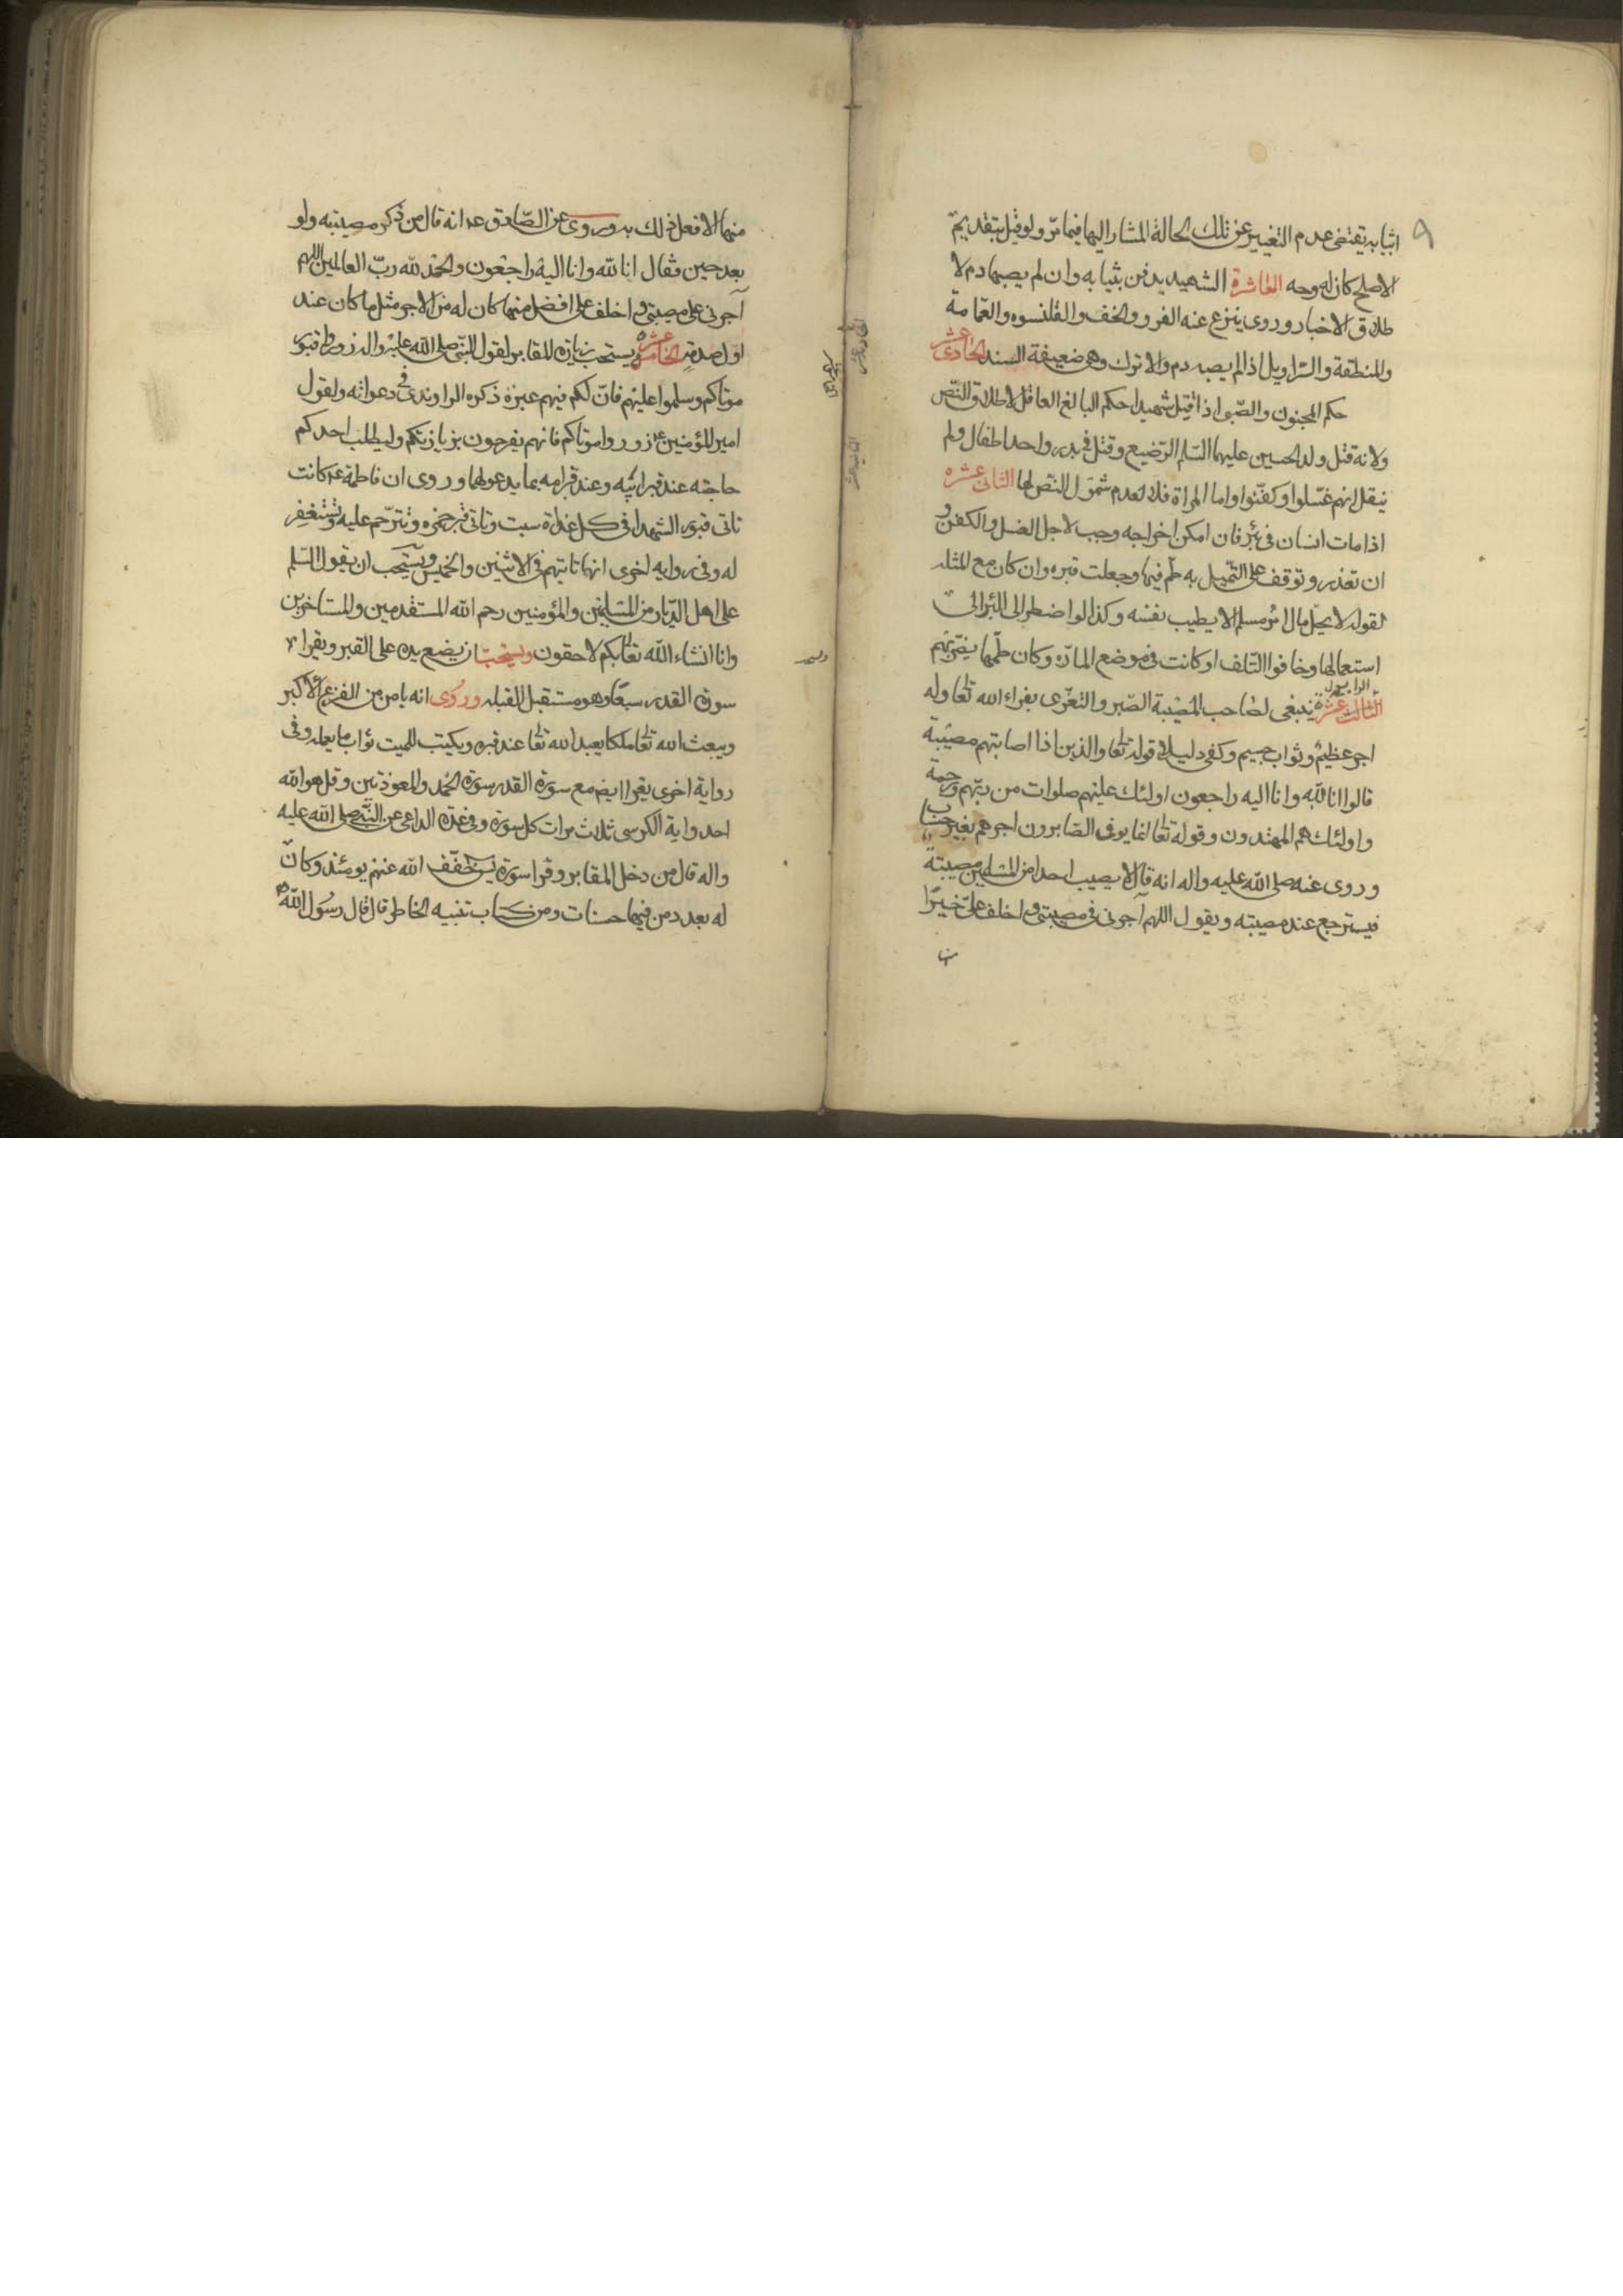 اثيابه يقتضى عدم التغيير عن تلك الحالة المشار اليها فيما مرّ ولو قيل بتقديم
الاصلح كان له وجه العاشرة الشهيد يدفن بثيابه وان لم يصبها دم لا
طلاق الاخبار وروى ينزع عنه الفرو والخف والقلنسوه والعمامة
والمنطقة والسراويل اذا لم يصبه دم والا ترك وهى ضعيفة السند الحادى عشر
حكم المجنون والصبى اذا قتل شهيدا حكم البالغ العاقل لاطلاق النص
ولانه قتل ولد الحسين عليهما السلم الرضيع وقتل فى بدر واحد اطفال ولم
ينقل انهم غسلوا وكفنوا واما المراة فلا لعدم شمول النص لها الثانى عشره
اذا مات انسان فى بئر فان امكن اخراجه وجب لاجل الغسل والكفن و
ان تعذر وتوقف على التمثيل به طم فيها وجعلت قبره وان كان مع المثله
لقوله لا يحل مال امرئ مسلم الا بطيب نفسه وكذا لو اضطر الى البئر الى
استعمالها وخافوا التلف او كانت فى موضع المارّة وكان طمها يضرّ بهم
الثالث عشرة ينبغى لصاحب المصيبة الصبر والتعزى بعزاء الله تعا وله
اجر عظيم وثواب جسيم وكفى دليلا قوله تعا والذين اذا اصابتهم مصيبة
قالوا انا لله وانا اليه راجعون اولئك عليهم صلوات من ربهم ورحمة
واولئك هم المهتدون وقوله تعا انما يوفى الصابرون اجرهم بغير حساب
وروى عنه صلى الله عليه واله انه قال لا يصيب احدا من المسلمين مصيبة
فيسترجع عند مصيبته ويقول اللهم آجرنى فى مصيبتى واخلف علىّ خيرًا
منها الا فعل ذلك به وروى عن الصادق عه انه قال من ذكر مصيبته ولو
بعد حين فقال انا لله وانا اليه راجعون والحمد لله ربّ العالمين اللهم
آجرنى على مصيبتى واخلف على افضل منها كان له من الاجر مثل ما كان عند
اول صدمة الخامس عشرة ويستحب زيارة المقابر لقول النبى صلى الله عليه واله زوروا قبور
موتاكم وسلموا عليهم فانّ لكم فيهم عبرة ذكره الراوندى فى دعواته ولقول
امير المؤمنين عه زوروا موتاكم فانهم يفرحون بزيارتكم وليطلب احدكم
حاجته عند قبر ابيه وعند قبر امه بما يدعو لهما وروى ان فاطمة عه كانت
تاتى قبور الشهدا فى كل غداة سبت وتاتى قبر حمزه وتترحم عليه وتستغفر
له وفى روايه اخرى انها تاتيهم فى الاثنين والخميس ويستحب ان يقول السلم
على اهل الديار من المسلمين والمؤمنين رحم الله المستقدمين والمستاخرين
وانا انشاء الله تعا بكم لاحقون ويستحبّ ان يضع يده على القبر ويقرا
سورة القدر سبعًا وهو مستقبل القبله وروى انه يامن من الفزع الاكبر
ويبعث الله تعا ملكا يعبد الله تعا عند قبره ويكتب للميت ثواب ما يعمله وفى
رواية اخرى يقرا ايضا مع سورة القدر سورة الحمد والمعوذتين وقل هو الله
احد واية الكرسى ثلاث مرات كل سورة وفى عدة الداعى عن النبى صلى الله عليه
واله قال من دخل المقابر وقرا سورة يس خفّف الله عنهم يومئذ وكان
له بعدد من فيها حسنات ومن كتاب تنبيه الخاطر قال قال رسول الله ص